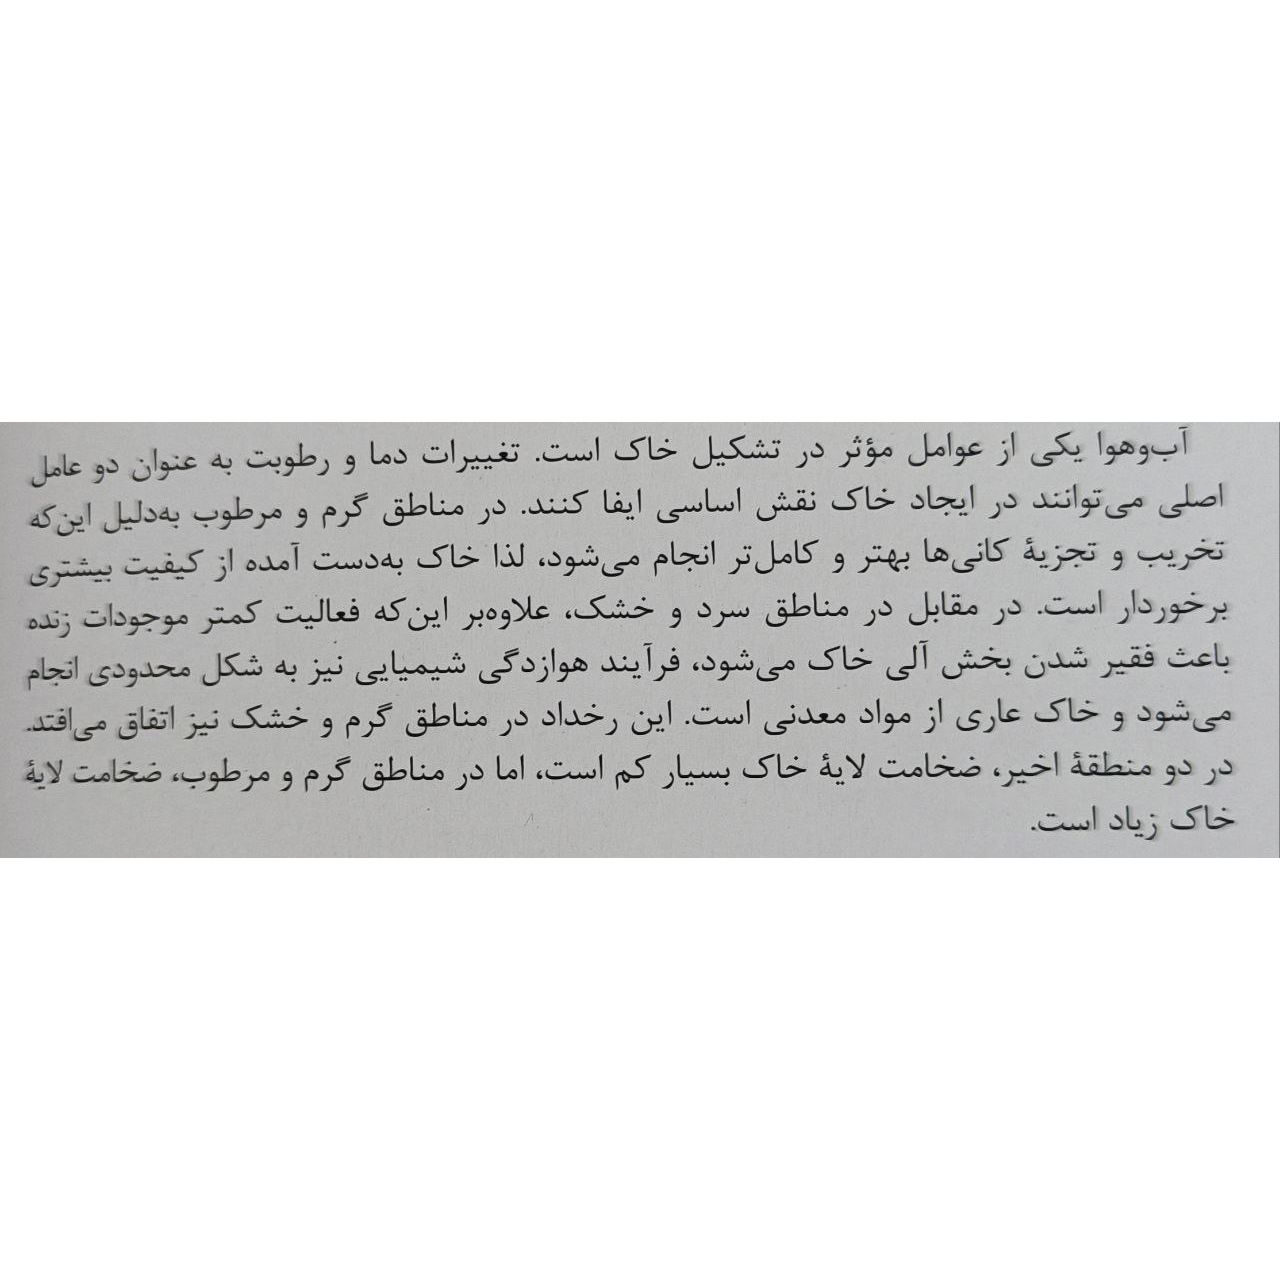 آب‌وهوا یکی از عوامل مؤثر در تشکیل خاک است. تغییرات دما و رطوبت به عنوان دو عامل
اصلی می‌توانند در ایجاد خاک نقش اساسی ایفا کنند. در مناطق گرم و مرطوب به‌دلیل این‌که
تخریب و تجزیهٔ کانی‌ها بهتر و کامل‌تر انجام می‌شود، لذا خاک به‌دست آمده از کیفیت بیشتری
برخوردار است. در مقابل در مناطق سرد و خشک، علاوه‌بر این‌که فعالیت کمتر موجودات زنده
باعث فقیر شدن بخش آلی خاک می‌شود، فرآیند هوازدگی شیمیایی نیز به شکل محدودی انجام
می‌شود و خاک عاری از مواد معدنی است. این رخداد در مناطق گرم و خشک نیز اتفاق می‌افتد.
در دو منطقهٔ اخیر، ضخامت لایهٔ خاک بسیار کم است، اما در مناطق گرم و مرطوب، ضخامت لایهٔ
خاک زیاد است.